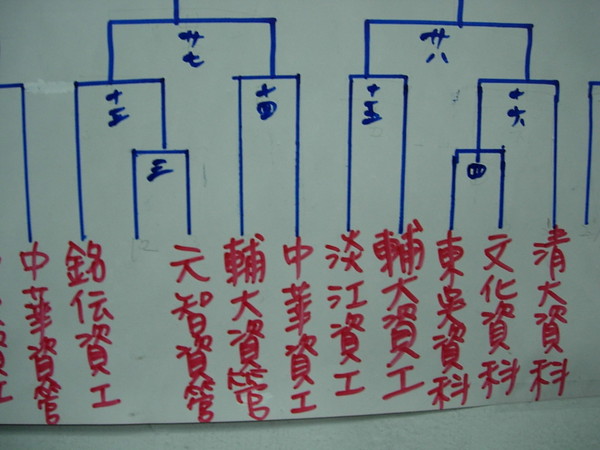 廿七
廿八
十三
十四
十五
十六
三
四
資工
中華資管
銘伝資工
元智資管
輔大資管
中華資工
淡江資工
輔大資工
東吳資科
文化資科
清大資科